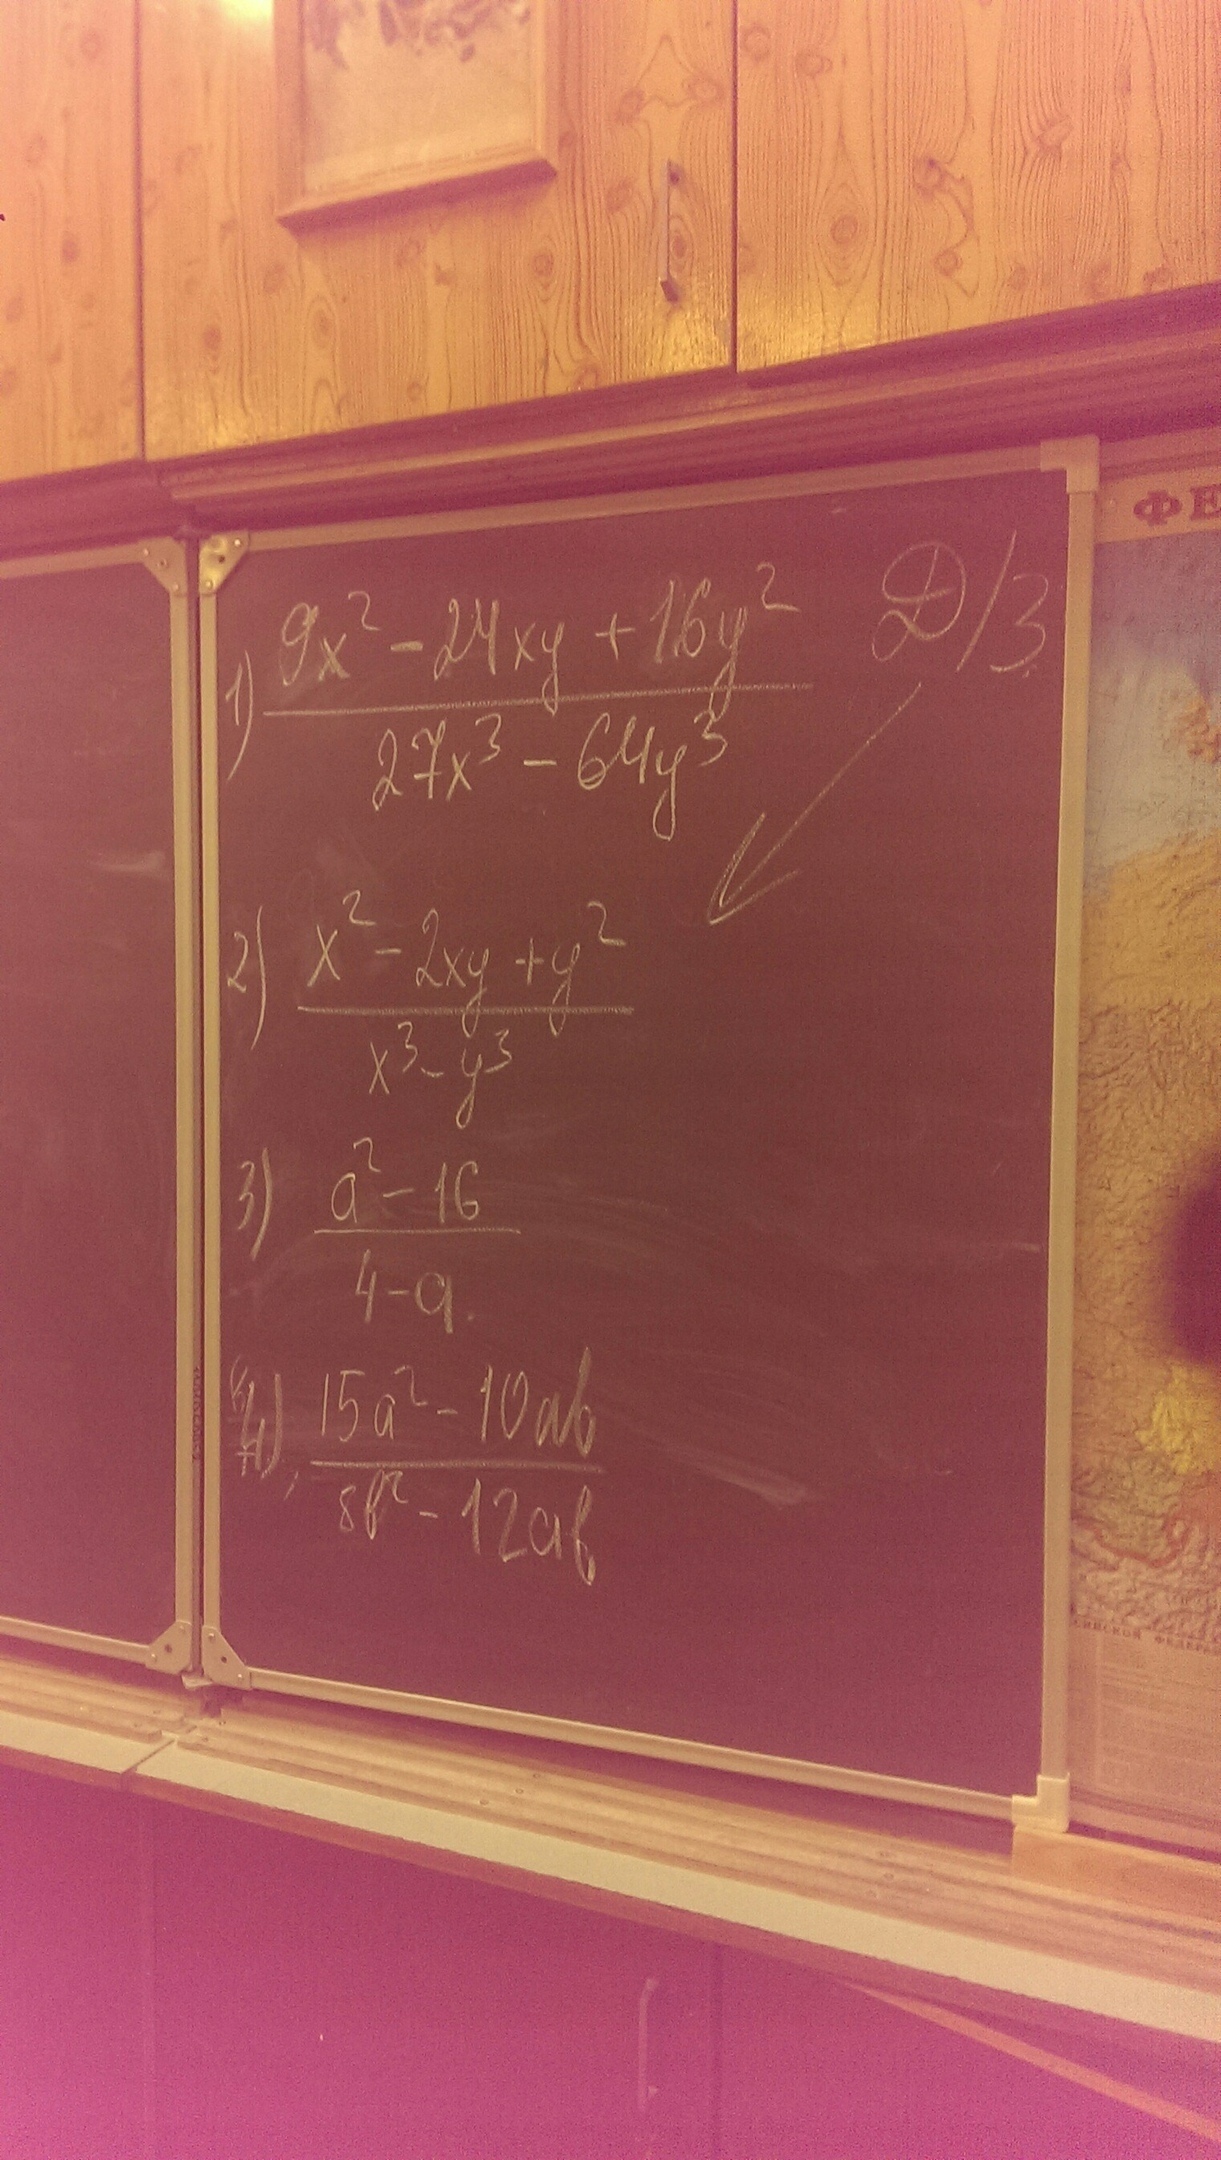 Д/З
1) (9x² - 24xy + 16y²) / (27x³ - 64y³)
2) (x² - 2xy + y²) / (x³ - y³)
3) (a² - 16) / (4 - a)
4) (15a² - 10ab) / (8b² - 12ab)
ФЕ